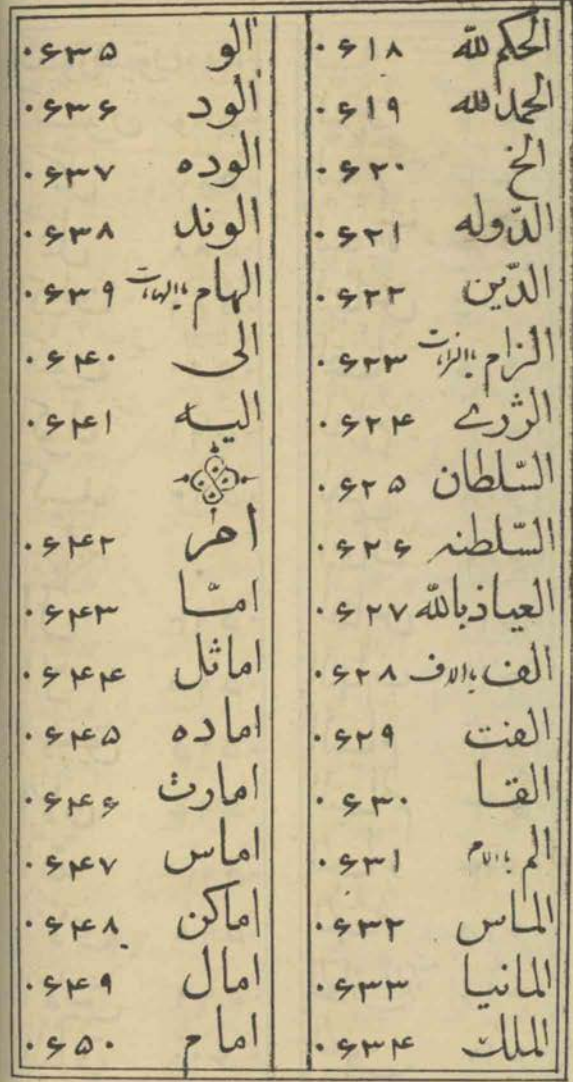 الحکم لله ۰۶۱۸
الحمد لله ۰۶۱۹
الخ ۰۶۲۰
الدّوله ۰۶۲۱
الدّین ۰۶۲۲
الزام یا الزامات ۰۶۲۳
الزوری ۰۶۲۴
السّلطان ۰۶۲۵
السّلطنه ۰۶۲۶
العیاذ بالله ۰۶۲۷
الف یا الاف ۰۶۲۸
الفت ۰۶۲۹
القا ۰۶۳۰
الم یا الام ۰۶۳۱
الماس ۰۶۳۲
المانیا ۰۶۳۳
الملک ۰۶۳۴
الو ۰۶۳۵
الود ۰۶۳۶
الوده ۰۶۳۷
الوند ۰۶۳۸
الهام یا الهامات ۰۶۳۹
الی ۰۶۴۰
الیه ۰۶۴۱
امر ۰۶۴۲
امّا ۰۶۴۳
اماثل ۰۶۴۴
اماده ۰۶۴۵
امارت ۰۶۴۶
اماس ۰۶۴۷
اماکن ۰۶۴۸
امال ۰۶۴۹
امام ۰۶۵۰